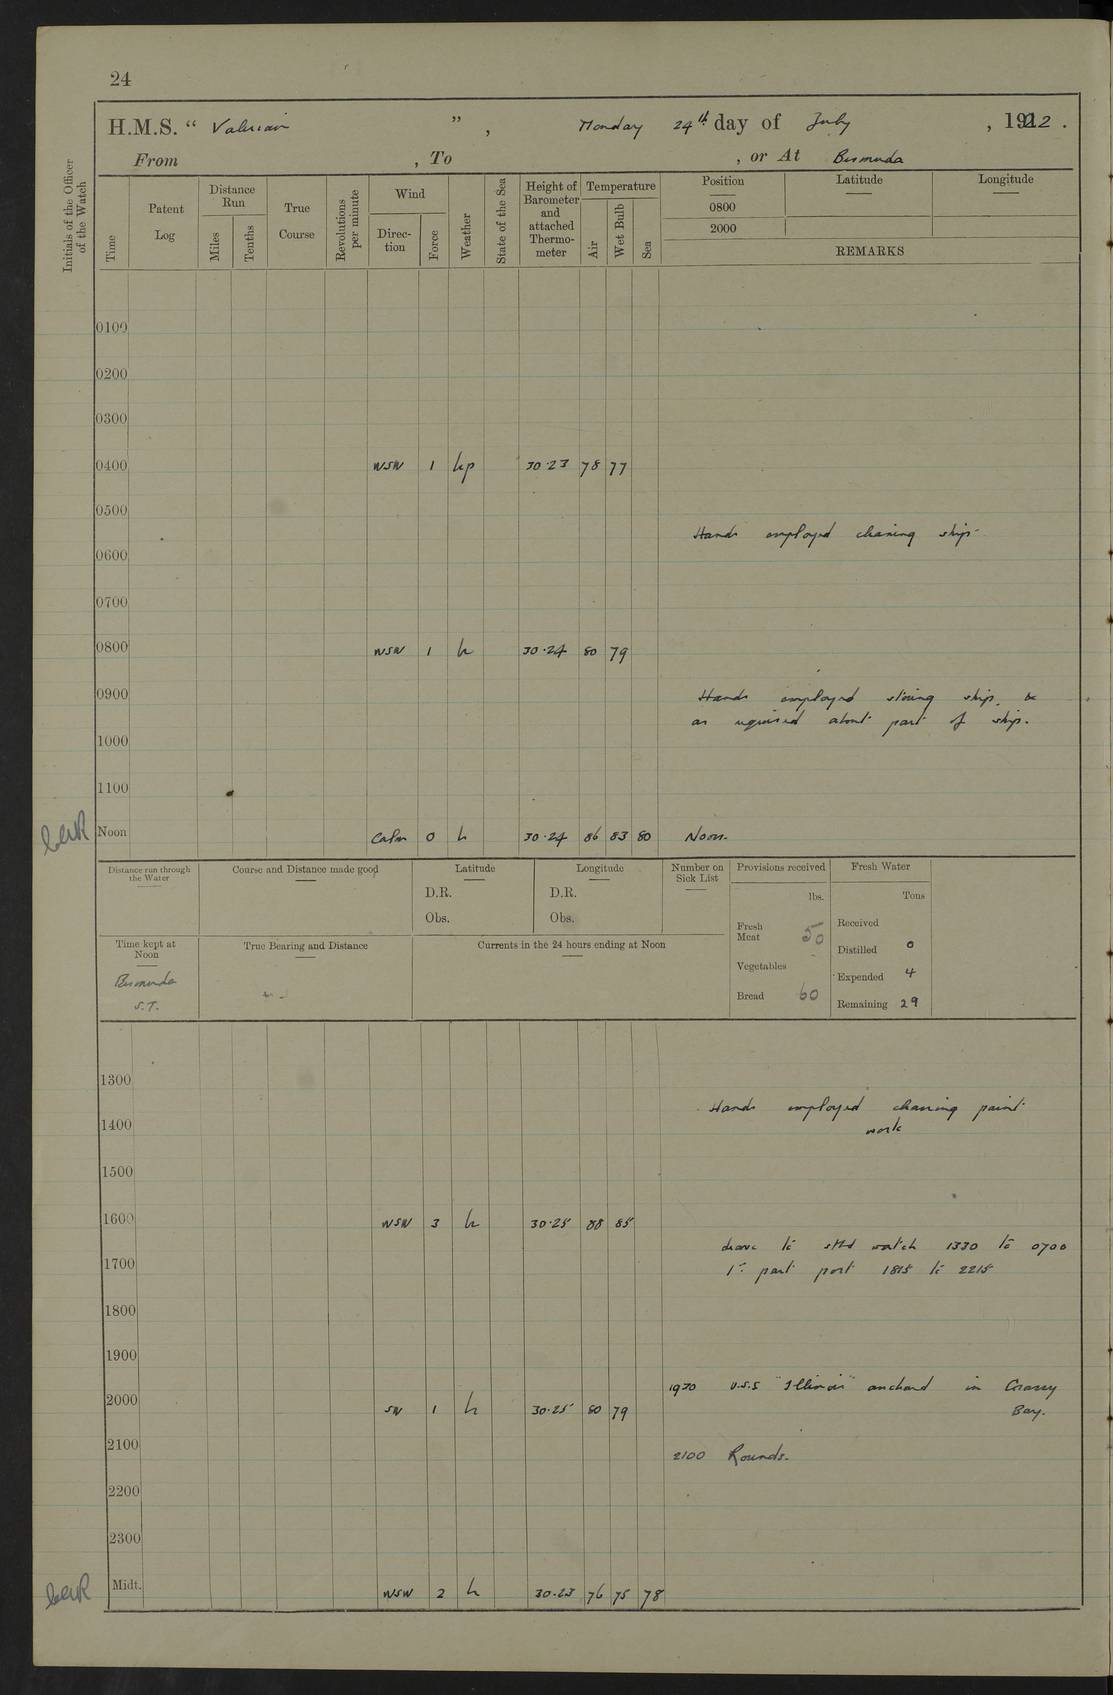 24
H.M.S. “ Valerian ” , Monday 24th day of July , 1922 .
From , To , or At Bermuda
Initials of the Officer of the Watch
Time
Patent Log
Distance Run
Miles
Tenths
True Course
Revolutions per minute
Wind
Direc-tion
Force
Weather
State of the Sea
Height of Barometer and attached Thermo-meter
Temperature
Air
Wet Bulb
Sea
Position Latitude Longitude
0800
2000
REMARKS
0100
0200
0300
0400 WSW 1 30·23 78 77
0500
Hands employed cleaning ship
0600
0700
0800 WSW 1 30·24 80 79
0900 Hands employed storing ship, &
as required about part of ship.
1000
1100
Noon Calm 0 30·24 86 83 80 Noon.
Distance run through the Water
Course and Distance made good
Latitude
D.R.
Obs.
Longitude
D.R.
Obs.
Number on Sick List
Provisions received
lbs.
Fresh Meat 50
Vegetables
Bread 60
Fresh Water
Tons
Received
Distilled 0
Expended 4
Remaining 29
Time kept at Noon
Bermuda
S.T.
True Bearing and Distance
Currents in the 24 hours ending at Noon
1300
Hands employed cleaning paint
work
1400
1500
1600 WSW 3 30·25 88 85
Leave to stbd watch 1330 to 0700
1700
1st part port 1815 to 2215
1800
1900
1930 U.S.S "Illinois" anchored in Grassy
Bay.
2000 SW 1 30·25 80 79
2100
2100 Rounds.
2200
2300
Midt. WSW 2 30·23 76 75 78